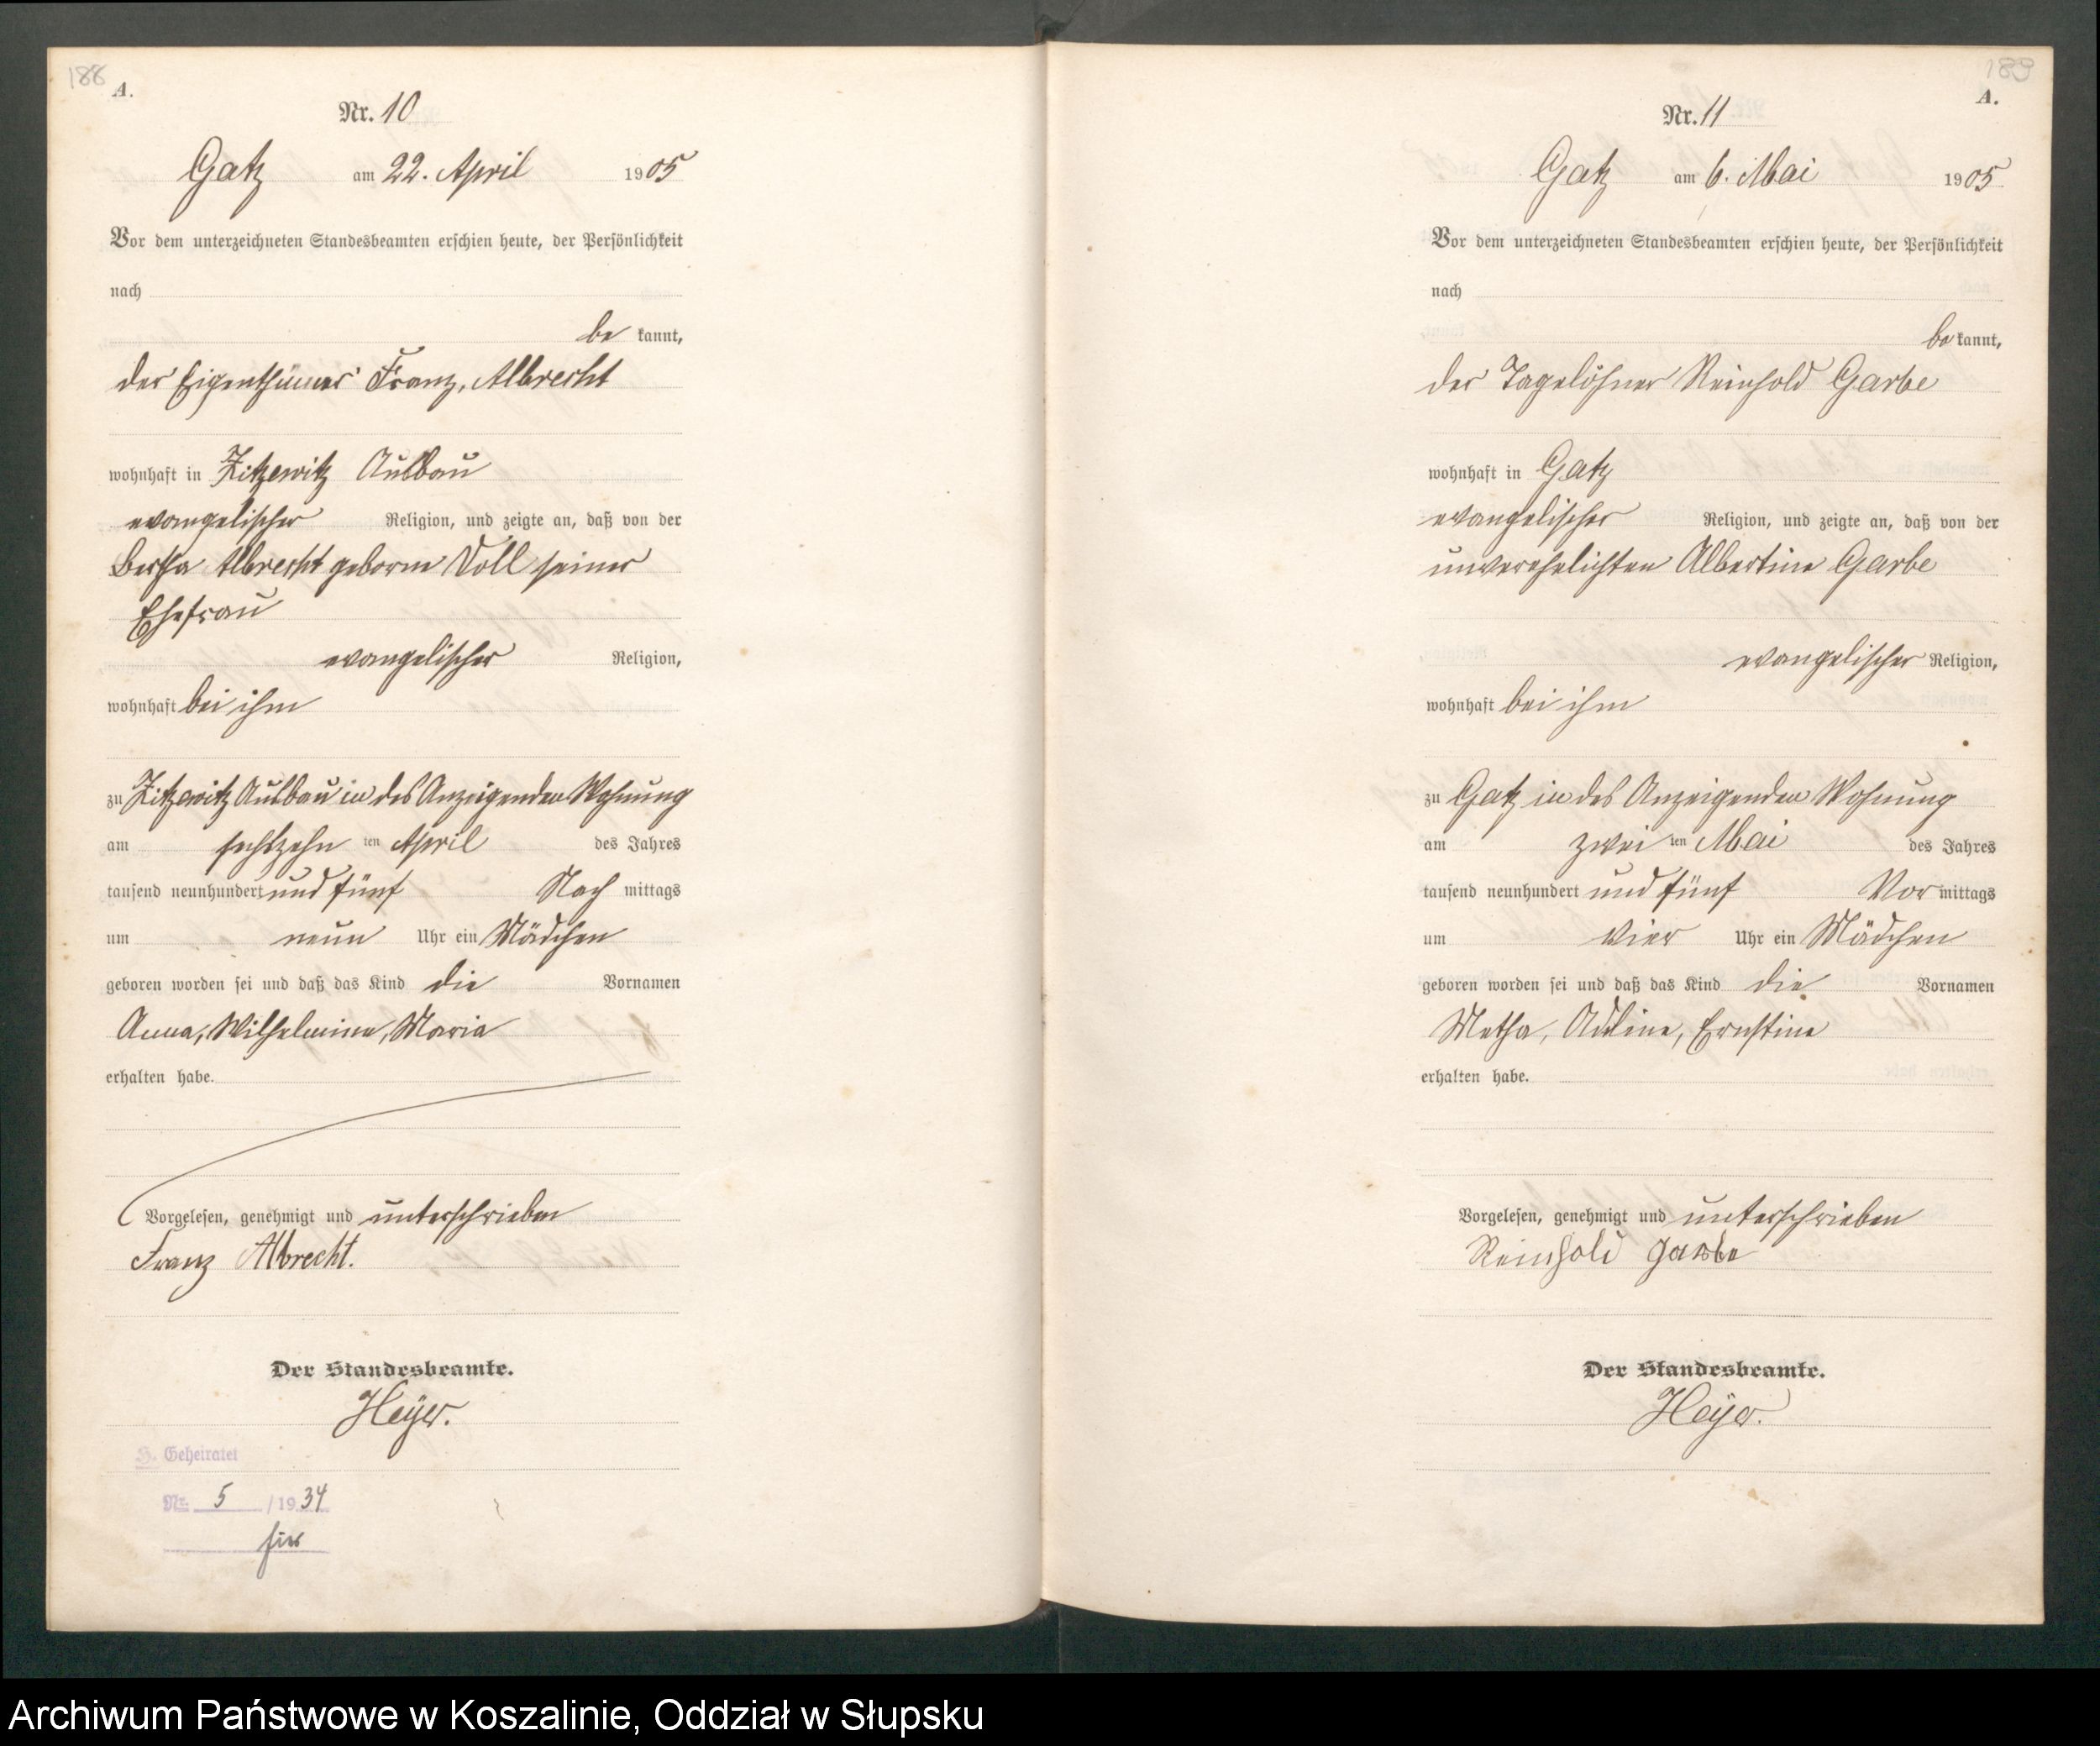 188
A.
Nr. 10
Gatz am 22. April 1905
Vor dem unterzeichneten Standesbeamten erschien heute, der Persönlichkeit
nach
be kannt,
der Eigenthümer Franz, Albrecht
wohnhaft in Zitzewitz Ausbau
evangelischer Religion, und zeigte an, daß von der
Bertha Albrecht geborne Voll seiner
Ehefrau
evangelischer Religion,
wohnhaft bei ihm
zu Zitzewitz Ausbau in des Anzeigenden Wohnung
am sechszehn ten April des Jahres
tausend neunhundert und fünf Nach mittags
um neun Uhr ein Mädchen
geboren worden sei und daß das Kind die Vornamen
Anna, Wilhelmine, Maria
erhalten habe.
Vorgelesen, genehmigt und unterschrieben
Franz Albrecht.
Der Standesbeamte.
Heÿer.
H. Geheiratet
Nr. 5 /1934
189
A.
Nr. 11
Gatz am 6. Mai 1905
Vor dem unterzeichneten Standesbeamten erschien heute, der Persönlichkeit
nach
be kannt,
der Tagelöhner Reinhold Garbe
wohnhaft in Gatz
evangelischer Religion, und zeigte an, daß von der
unverehelichten Albertine Garbe
evangelischer Religion,
wohnhaft bei ihm
zu Gatz in des Anzeigenden Wohnung
am zwei ten Mai des Jahres
tausend neunhundert und fünf Vor mittags
um vier Uhr ein Mädchen
geboren worden sei und daß das Kind die Vornamen
Metha, Ernstine
erhalten habe.
Vorgelesen, genehmigt und unterschrieben
Reinhold Garbe
Der Standesbeamte.
Heÿer.
Archiwum Państwowe w Koszalinie, Oddział w Słupsku